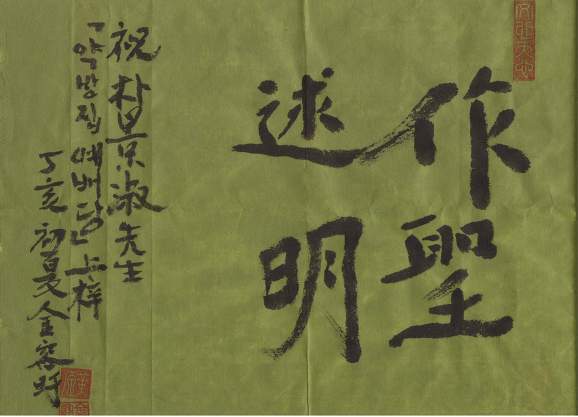 作聖
述明
祝朴景淑先生
「약방집 예배당」上梓
丁亥 初夏 金容